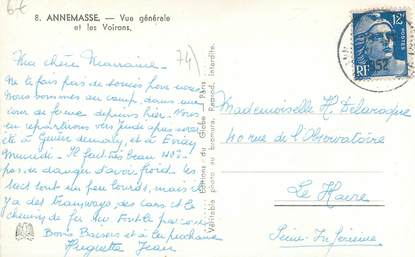 6€
8. ANNEMASSE. — Vue générale
et les Voirons.
74)
Ma chère Marraine
Ne te fais pas de soucis pour nous.
Nous sommes au camp, dans une
tour de ferme depuis hier. Nous
en repartirons vers jeudi après avoir
été à
et à
Il fait très beau 40°
pas de danger d'avoir froid. les
sacs sont un peu lourds, mais il
y a des tramways, des cars et le
chemin de fer sur tout le parcours
Bons Baisers et à la prochaine
Huguette Jean
Editions du Globe - Paris
Véritable photo au bromure. Reprod. interdite.
12F
POSTES
RF
1952
Mademoiselle H. Delaroque
40 rue de l'Observatoire
Le Havre
Seine-Inférieure